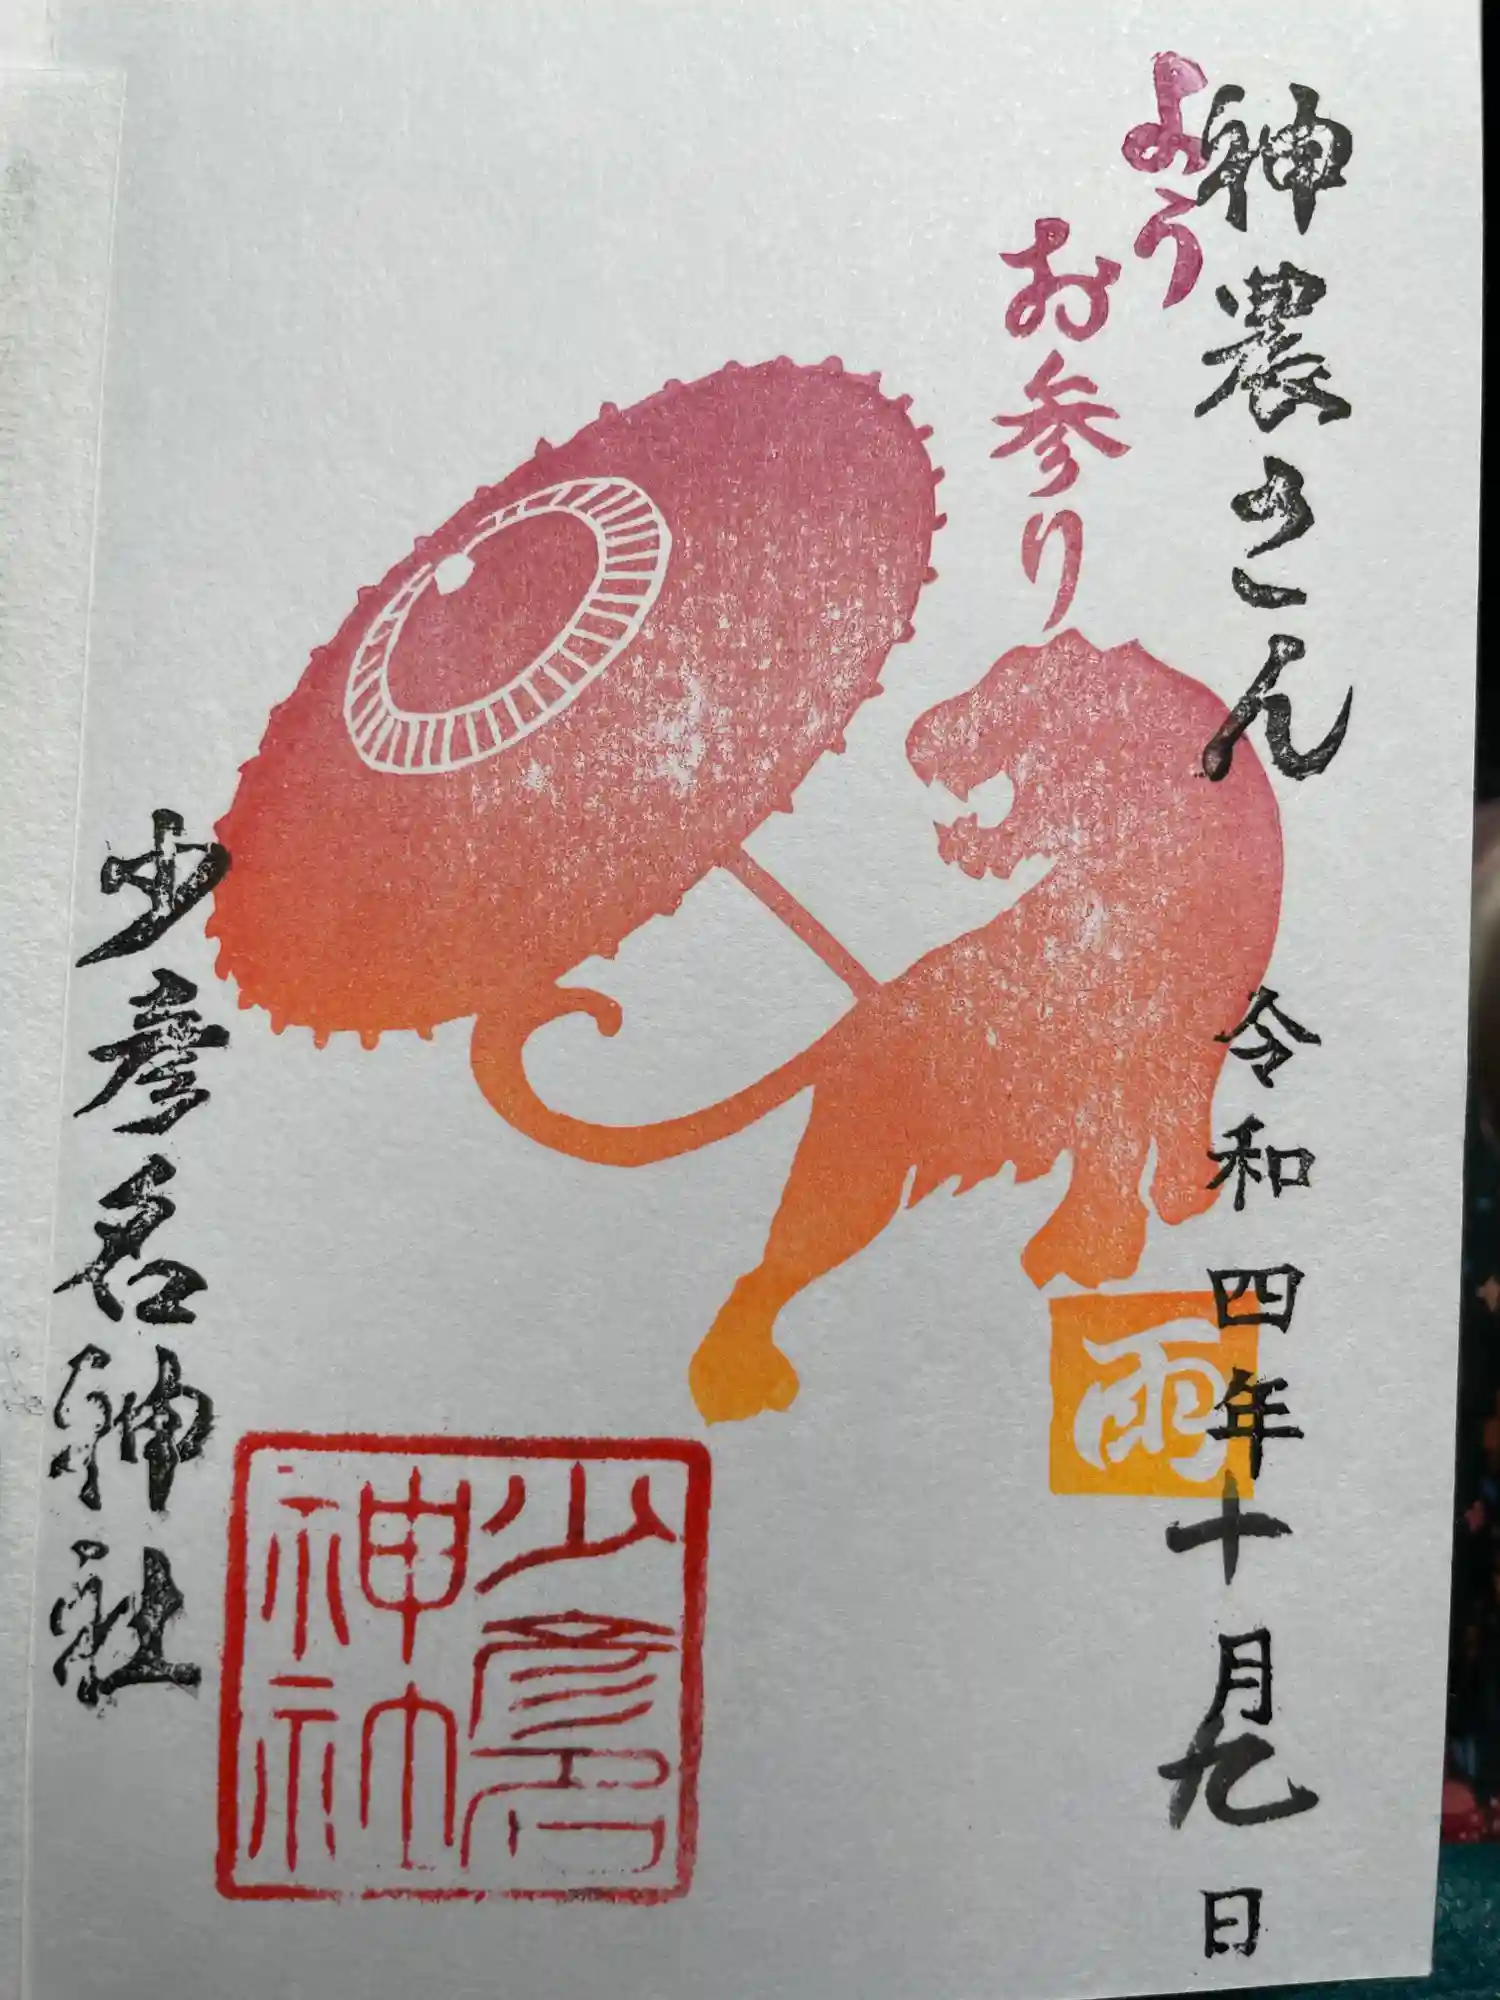 神農さん
令和四年十月九日
よう
お参り
雨
少彦名神社
少彦名
神社